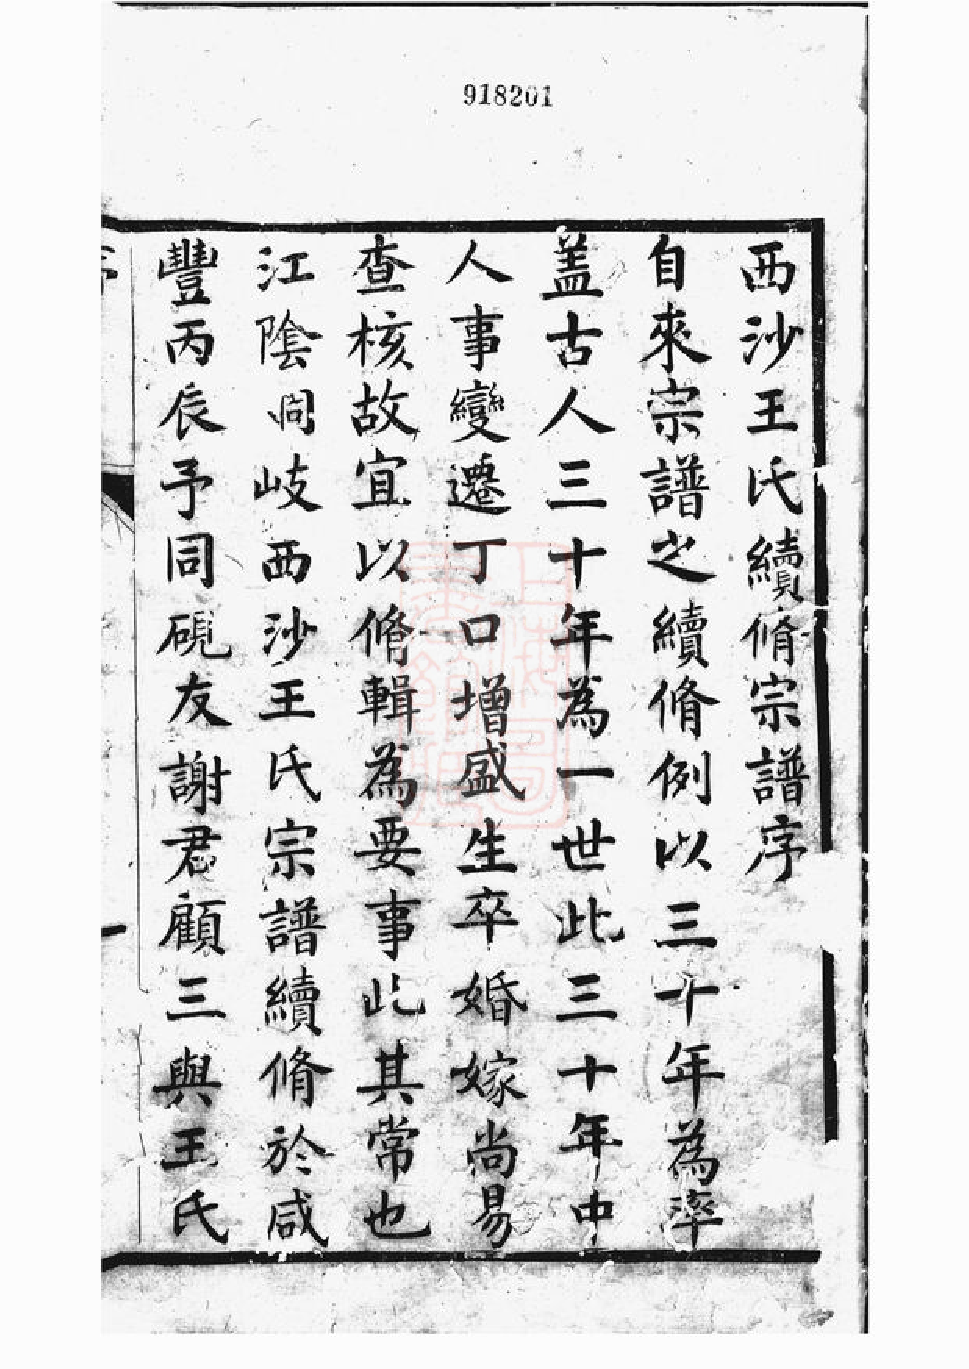 918201
西沙王氏續脩宗譜序
自來宗譜之續脩例以三十年為率
蓋古人三十年為一世此三十年中
人事變遷丁口增盛生卒婚嫁尚易
查核故宜以脩輯為要事此其常也
江陰周岐西沙王氏宗譜續脩於咸
豐丙辰予同硯友謝君顧三與王氏